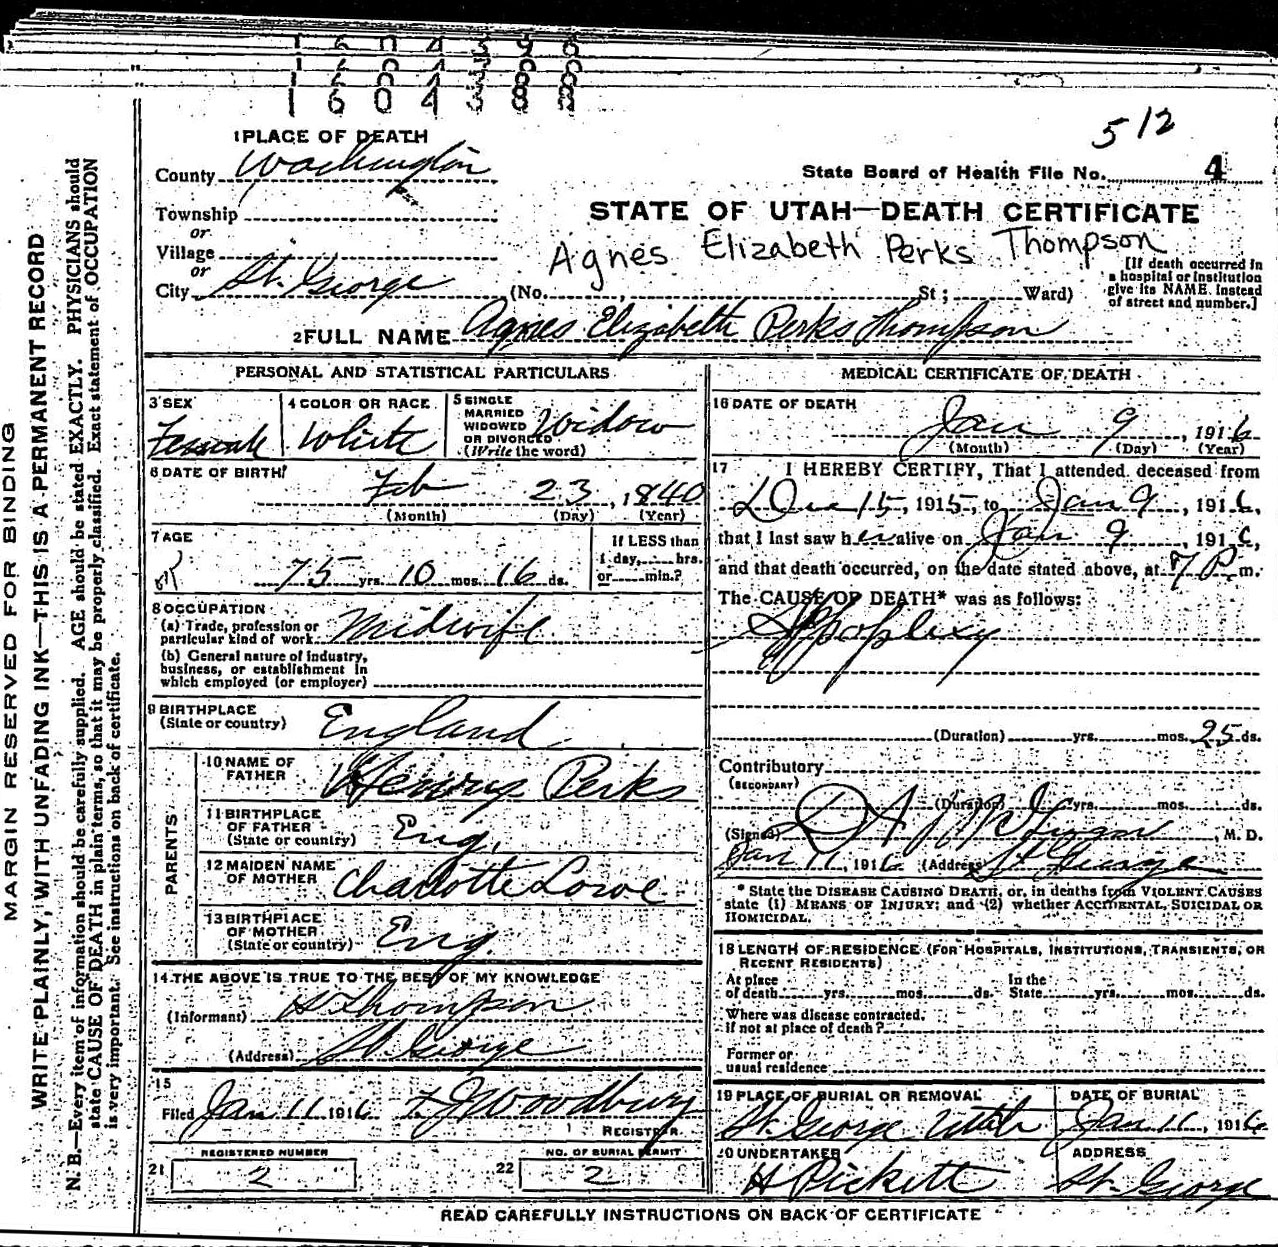 1 6 0 4 3 8 8
512
1 PLACE OF DEATH
County Washington
State Board of Health File No. 4
Township
or
Village
or
City St. George
STATE OF UTAH—DEATH CERTIFICATE
Agnes Elizabeth Perks Thompson
(No. , St; Ward)
[If death occurred in
a hospital or institution
give its NAME. instead
of street and number.]
2 FULL NAME Agnes Elizabeth Perks Thompson
PERSONAL AND STATISTICAL PARTICULARS
3 SEX
Female
4 COLOR OR RACE
White
5 SINGLE
MARRIED
WIDOWED
OR DIVORCED
(Write the word)
Widow
6 DATE OF BIRTH
Feb 23, 1840
(Month) (Day) (Year)
7 AGE
75 yrs. 10 mos. 16 ds.
If LESS than
1 day, hrs.
or min.?
8 OCCUPATION
(a) Trade, profession or
particular kind of work Midwife
(b) General nature of industry,
business, or establishment in
which employed (or employer)
9 BIRTHPLACE
(State or country) England
PARENTS
10 NAME OF
FATHER Henry Perks
11 BIRTHPLACE
OF FATHER
(State or country) Eng.
12 MAIDEN NAME
OF MOTHER Charlotte Lowe
13 BIRTHPLACE
OF MOTHER
(State or country) Eng
14 THE ABOVE IS TRUE TO THE BEST OF MY KNOWLEDGE
(Informant) H Thompson
(Address) St. George
15
Filed Jan 11 1916 F J Woodbury
REGISTRAR
REGISTERED NUMBER
21 2
NO. OF BURIAL PERMIT
22 2
MEDICAL CERTIFICATE OF DEATH
16 DATE OF DEATH
Jan 9, 1916
(Month) (Day) (Year)
17 I HEREBY CERTIFY, That I attended deceased from
Dec 15, 1915, to Jan 9, 1916,
that I last saw her alive on Jan 9, 1916,
and that death occurred, on the date stated above, at 7 P.m.
The CAUSE OF DEATH* was as follows:
Appoplexy
(Duration) yrs. mos. 25 ds.
Contributory
(SECONDARY)
(Duration) yrs. mos. ds.
(Signed) , M. D.
Jan 11, 1916 (Address) St George
* State the DISEASE CAUSING DEATH, or, in deaths from VIOLENT CAUSES
state (1) MEANS OF INJURY; and (2) whether ACCIDENTAL, SUICIDAL OR
HOMICIDAL.
18 LENGTH OF RESIDENCE (FOR HOSPITALS, INSTITUTIONS, TRANSIENTS, OR
RECENT RESIDENTS)
At place
of death yrs. mos. ds.
In the
State yrs. mos. ds.
Where was disease contracted.
if not at place of death?
Former or
usual residence
19 PLACE OF BURIAL OR REMOVAL
St. George Utah
DATE OF BURIAL
Jan 11, 1916
20 UNDERTAKER
H Pickett
ADDRESS
St. George
READ CAREFULLY INSTRUCTIONS ON BACK OF CERTIFICATE
MARGIN RESERVED FOR BINDING
WRITE PLAINLY, WITH UNFADING INK—THIS IS A PERMANENT RECORD
N. B.—Every item of information should be carefully supplied. AGE should be stated EXACTLY. PHYSICIANS should
state CAUSE OF DEATH in plain terms, so that it may be properly classified. Exact statement of OCCUPATION
is very important. See instructions on back of certificate.